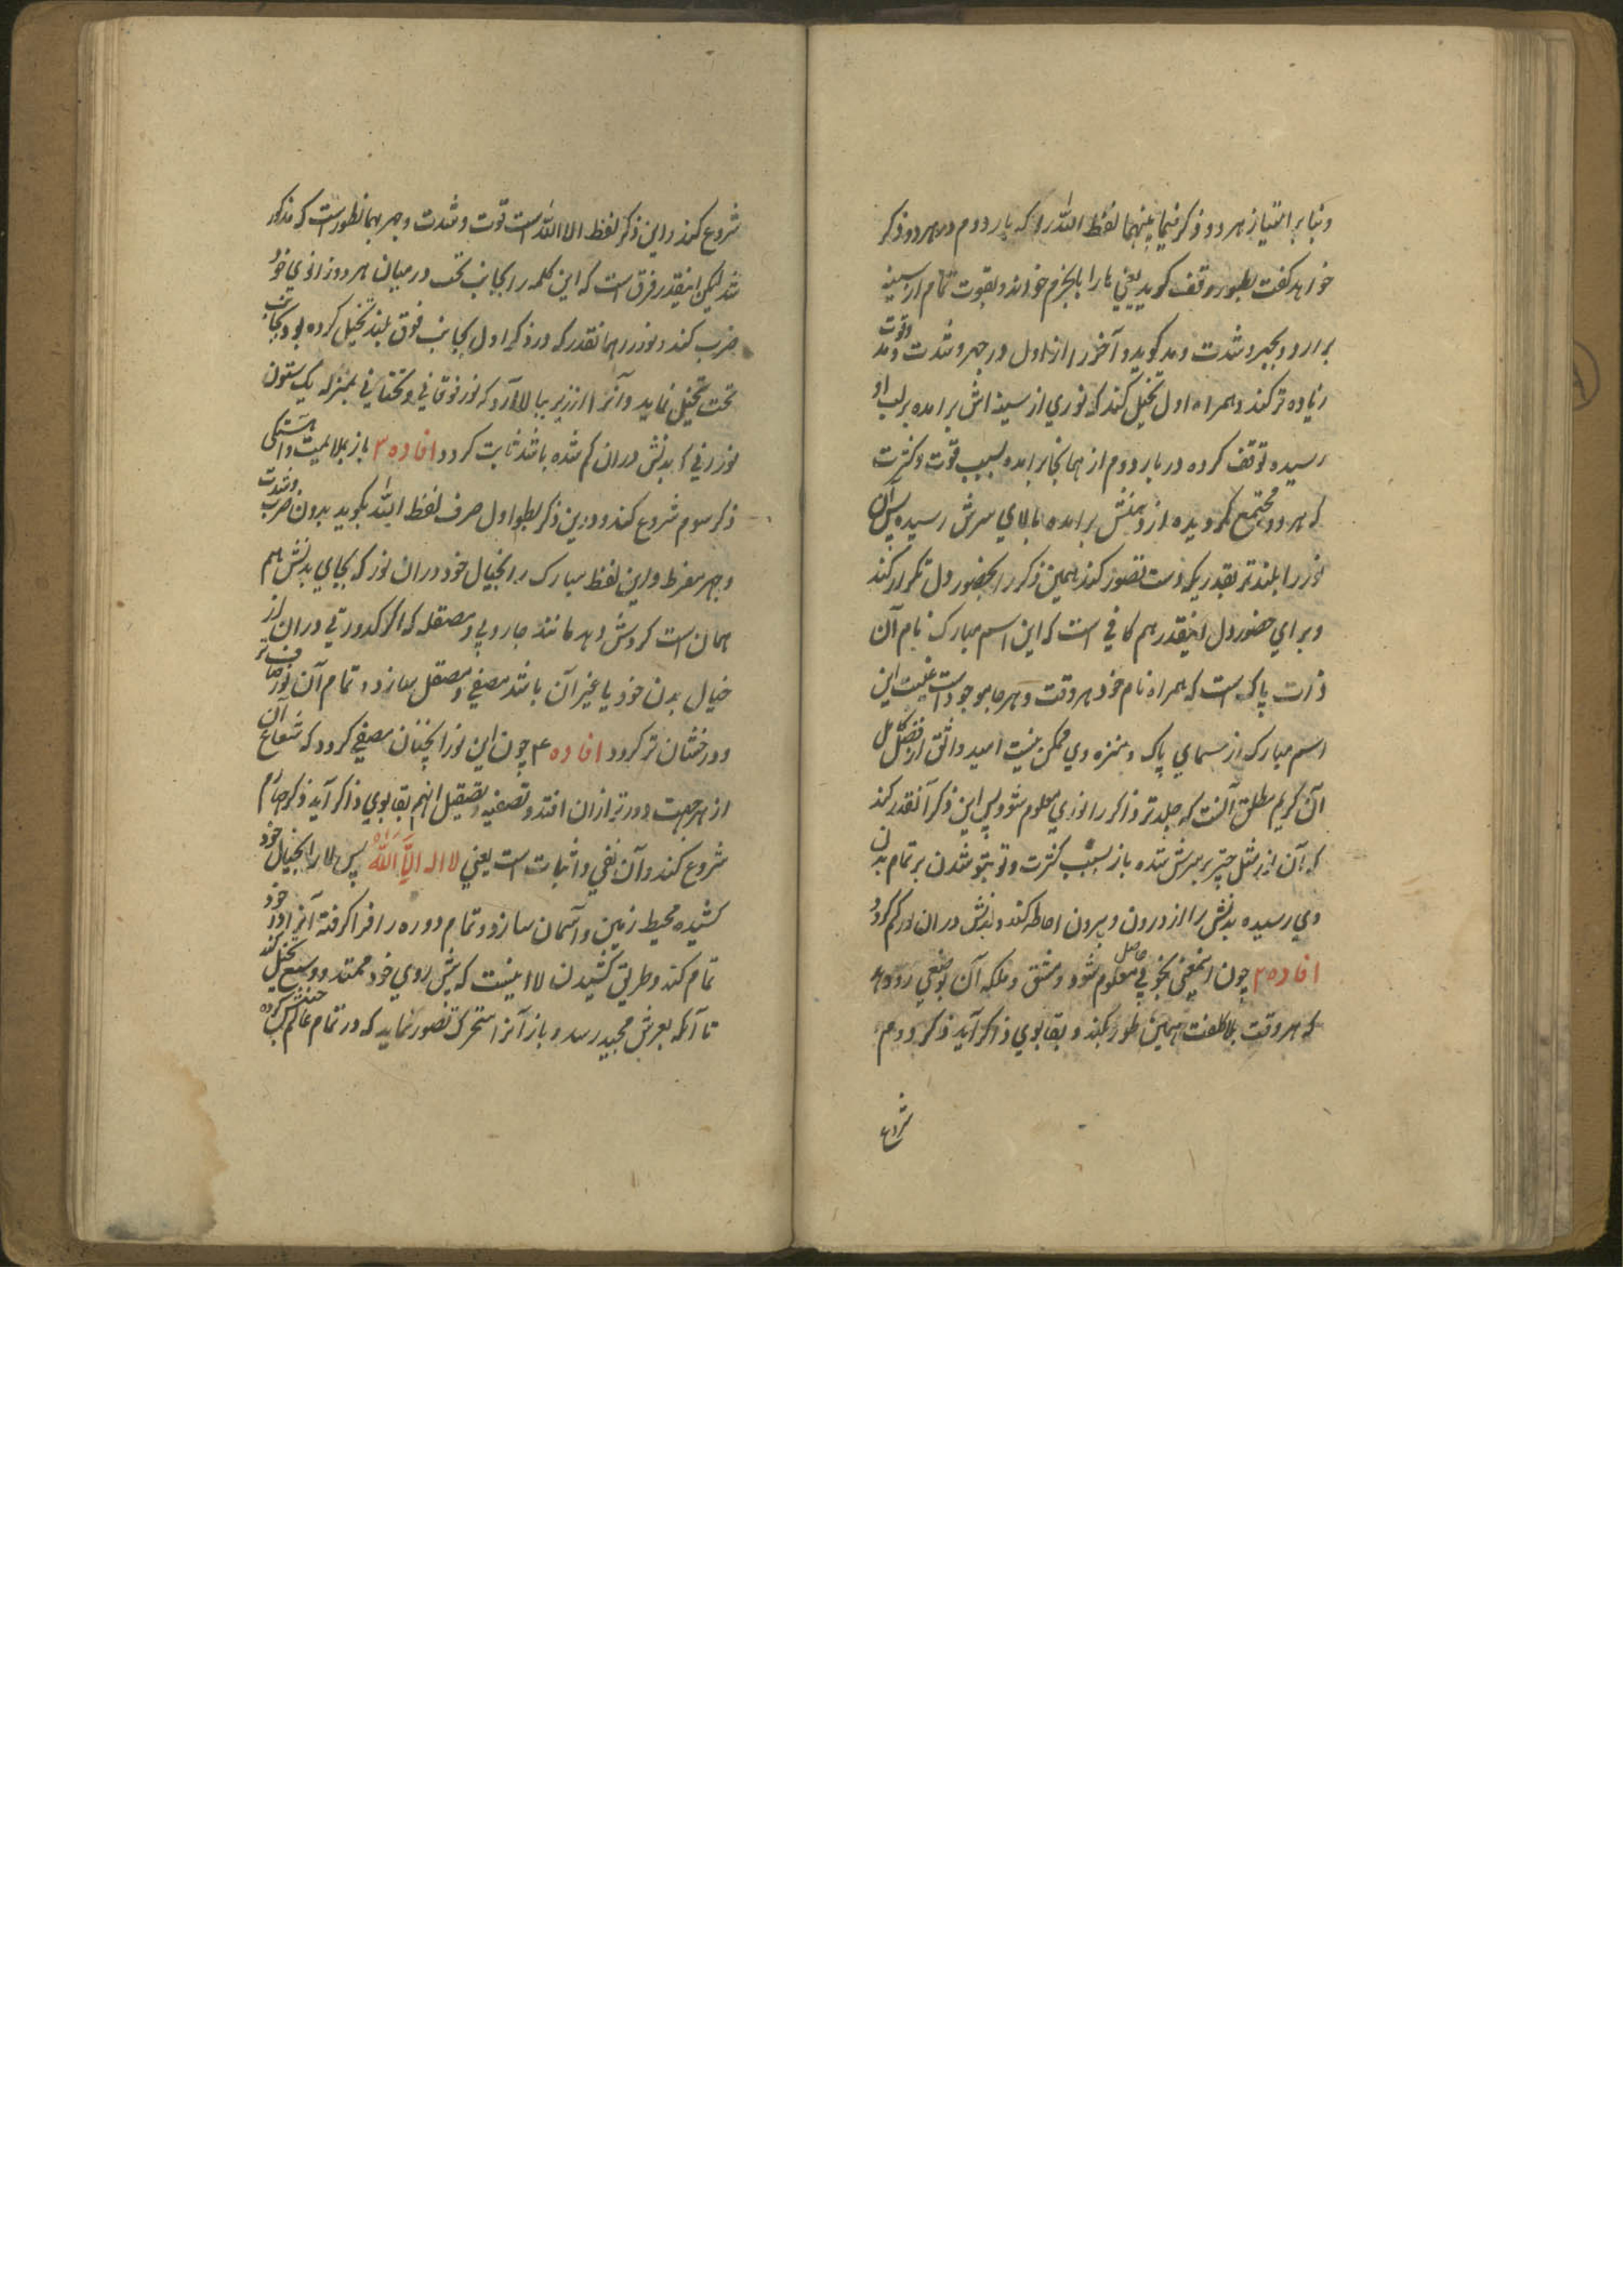 وبنا بر امتیاز هر دو ذکر فیما بینهما لفظ الله را که بار دوم در هر دو ذکر
خواهد گفت بطور وقف گوید یعنی ها را بالجزم خواند و بقوت تمام از سینه
برارد و بجهر و شدت و مد گوید و آخر را از اول در جهر و شدت و مد وقوت
زیاده تر کند و همراه اول تخیل کند که نوری از سینه اش برامده بر لب او
رسیده توقف کرده در بار دوم از همانجا برامده بسبب قوت و کثرت
که هر دو مجتمع گردیده از دهنش برامده بالای سرش رسیده پس آن
نور را بلندتر بقدر یکدست تصور کند همین ذکر را بحضور دل تکرار کند
و برای حضور دل اینقدر هم کافی است که این اسم مبارک نام آن
ذات پاک است که همراه نام خود هر وقت و هر جا موجود است غیبت این
اسم مبارک از مسمای پاک و منزه وی ممکن نیست امید واثق از فضل کامل
آن کریم مطلق آنست که جلدتر ذاکر را نوری معلوم شود پس این ذکر آنقدر کند
که آن نور مثل چتر بر سرش شده باز بسبب کثرت و تو بتو شدن بر تمام بدن
وی رسیده بدنش را از درون و بیرون احاطه کند و بدنش در ان نور گم گردد
افاده ۲ چون اینمعنی بخوبی حاصل معلوم شود و مشق و ملکه آن بوضعی رو دهد
که هر وقت بلا کلفت همین طور کند و بقابوی ذاکر آید ذکر دوم
شروع
شروع کند و این ذکر لفظ الا الله است قوت و شدت و جهر بهمانطور است که مذکور
شد لیکن اینقدر فرق است که این کلمه را بجانب تحت در میان هر دو زانوی خود
ضرب کند و نور را همانقدر که در ذکر اول بجانب فوق بلند تخیل کرده بود بجانب
تحت تخیل نماید و آنرا از زیر ببالا آرد که نور فوقانی و تحتانی بمنزله یک ستون
نورانی که بدنش دران گم شده باشد ثابت گردد افاده ۳ باز بملایمت و آهستگی
ذکر سوم شروع کند و درین ذکر بطور اول صرف لفظ الله بگوید بدون ضرب وشدت
و جهر مفرط و این لفظ مبارک را بخیال خود دران نور که بجای بدنش هم
همان است گردش دهد مانند جاروبی و مصقله که اگر کدورتی دران از
خیال بدن خود یا غیر آن باشد مصفی و مصقل سازد و تمام آن نور صاف تر
و درخشان تر گردد افاده ۴ چون این نور آنچنان مصفی گردد که شعاع آن
از هر جهت دورتر ازان افتد و تصفیه و تصقیل انهم بقابوی ذاکر آید ذکر چهارم
شروع کند و آن نفی و اثبات است یعنی لا اله الا الله پس لا را بخیال خود
کشیده محیط زمین و آسمان سازد و تمام دوره را فرا گرفته آنرا در خود
تمام کند و طریق کشیدن لا اینست که پیش روی خود ممتد و وسیع تخیل کند
تا آنکه بعرش مجید رسد و باز آنرا متحرک تصور نماید که در تمام عالم